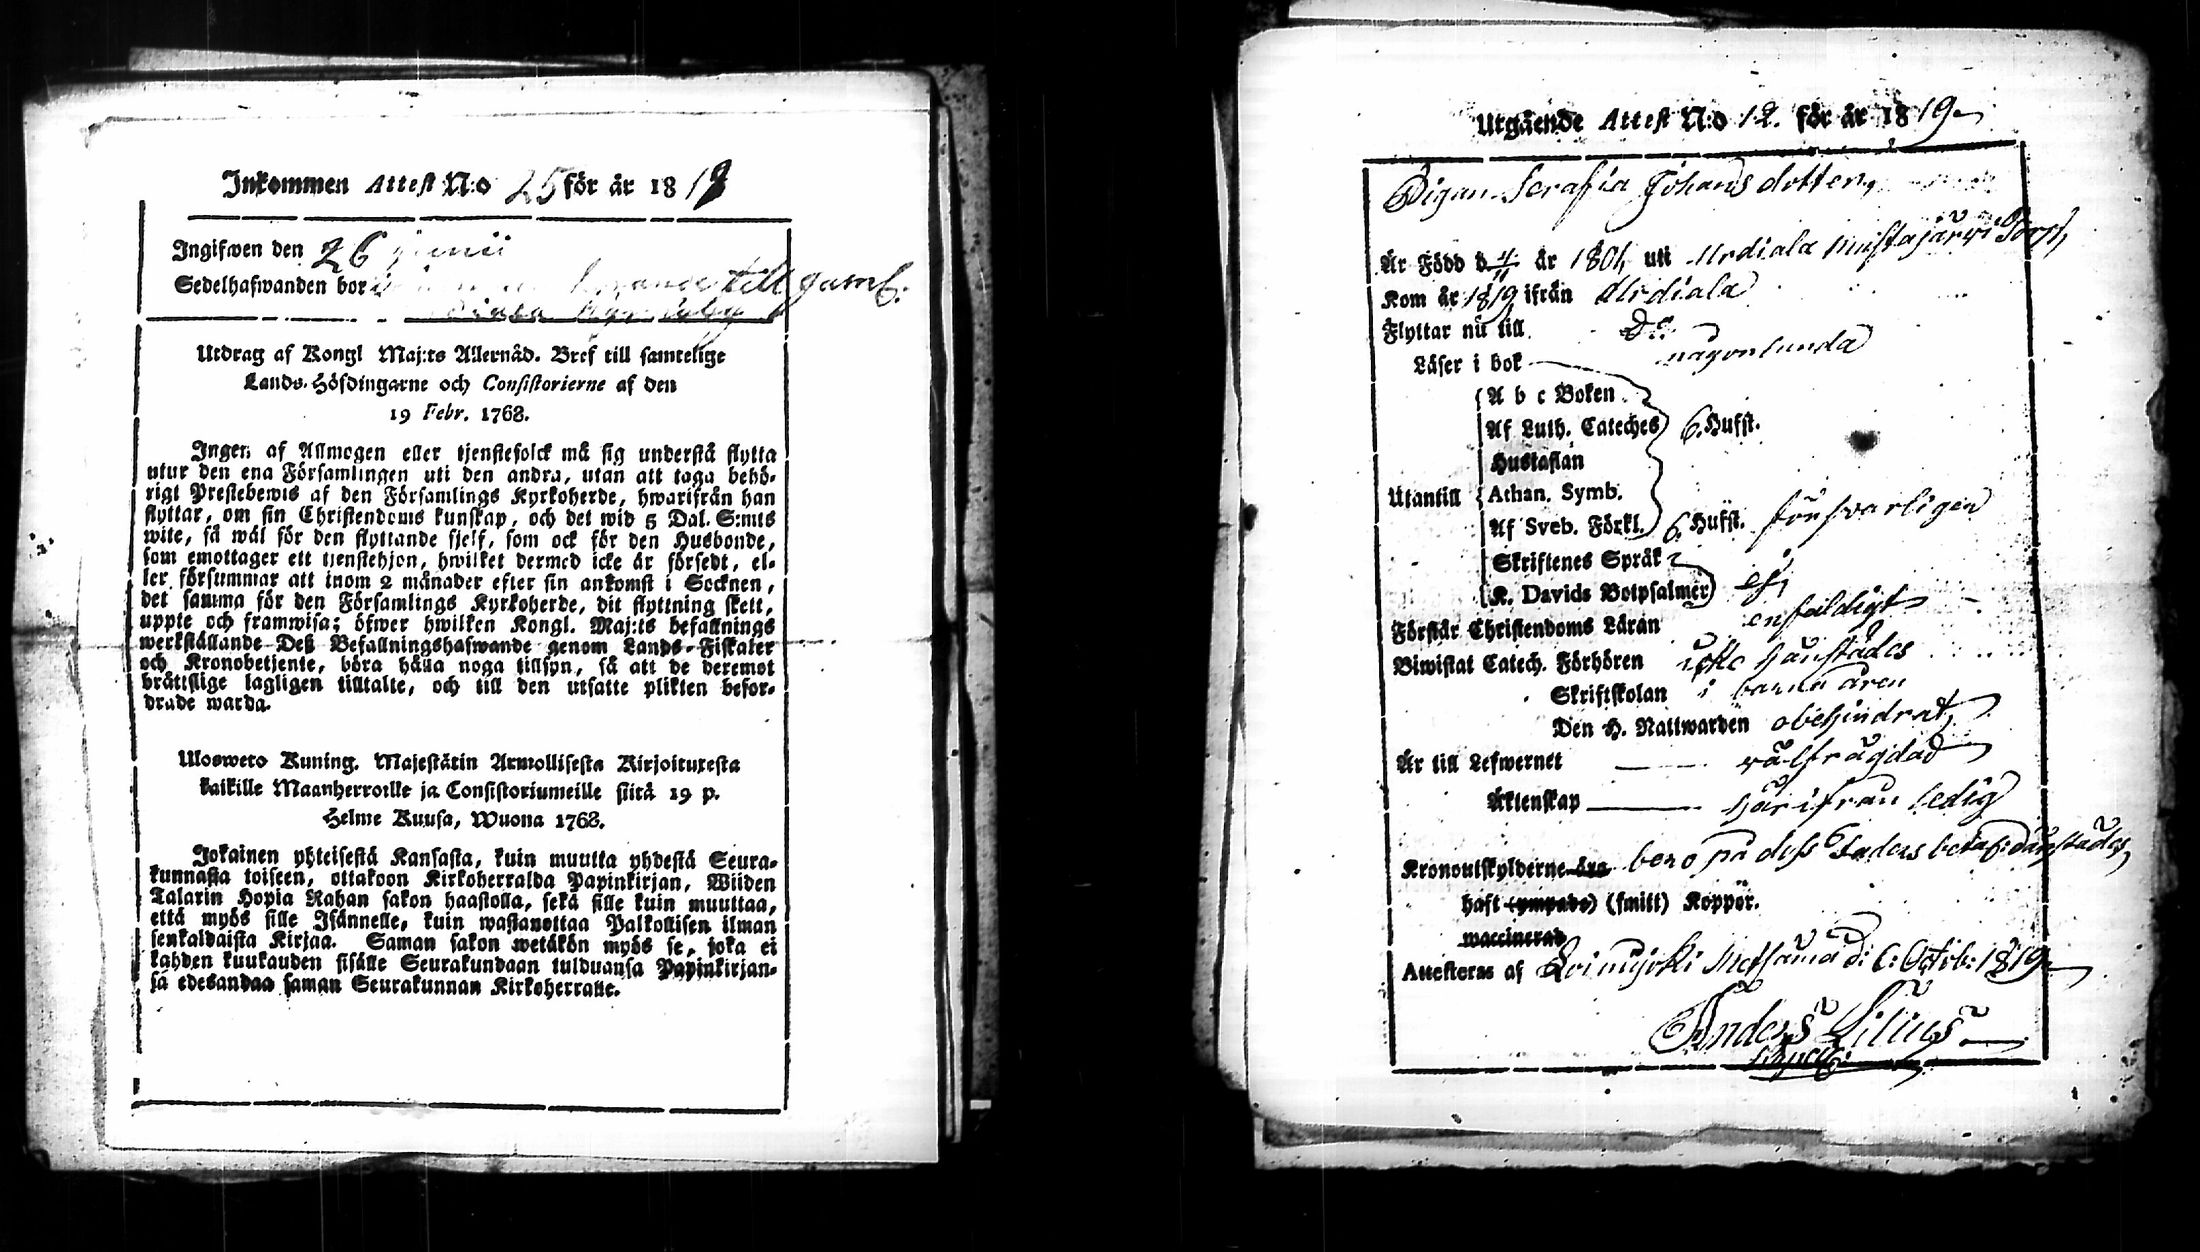 Inkommen Attest N:o 25 för år 1819
Ingifwen den 26 junii
Sedelhafwanden bor till
Utdrag af Kongl Maj:ts Allernåd. Bref till samtelige
Lands-Höfdingarne och Consistorierne af den
19 Febr. 1768.
Ingen af Allmogen eller tjenstefolck må sig understå flytta
utur den ena Församlingen uti den andra, utan att taga behö-
rigt Prestebewis af den Församlings Kyrkoherde, hwarifrån han
flyttar, om sin Christendoms kunskap, och det wid 5 Dal. S:mts
wite, så wäl för den flyttande sjelf, som ock för den Husbonde,
som emottager ett tjenstehjon, hwilket dermed icke är försedt, el-
ler försummar att inom 2 månader efter sin ankomst i Socknen,
det samma för den Församlings Kyrkoherde, dit flyttning skett,
uppte och framwisa; öfwer hwilken Kongl. Maj:ts befallnings
werkställande Deß Befallningshafwande genom Lands-Fiskaler
och Kronobetjente, böra hålla noga tillsyn, så att de deremot
bråttslige lagligen tilltalte, och till den utsatte plikten befor-
drade warda.
Uloswero Kuning. Majestätin Armollisesta Kirjoituxesta
kaikille Maanherroille ja Consistoriumeille siitä 19 p.
Helme Kuusa, Wuona 1768.
Jokainen yhteisestä Kansasta, kuin muutta yhdestä Seura-
kunnasta toiseen, ottakoon Kirkoherralda Papinkirjan, Wiiden
Talarin Hopia Rahan sakon haastolla, sekä sille kuin muuttaa,
että myös sille Isännelle, kuin wastanottaa Palkollisen ilman
senkaldaista Kirjaa. Saman sakon wetäkön myös se, joka ei
kahden kuukauden sisälle Seurakundaan tulduansa Papinkirjan-
sa edesandaa saman Seurakunnan Kirkoherralle.
Utgående Attest N:o 12. för år 1819
Pigan Serafia Johans dotter,
Är Född d. 4/11 år 1801 uti Urdiala Mustajärvi Torp,
Kom år 1819 ifrån Urdiala
Flyttar nu till D:o
Läser i bok någonlunda
A b c Boken
Af Luth. Cateches 6. Hufst.
Hustaflan
Utantill Athan. Symb.
Af Sveb. Förkl. 6. Hufst. försvarligen
Skriftenes Språk
K. Davids Botpsalmer ej,
Förstår Christendoms Läran enfaldigt
Biwistat Catech. Förhören icke härstädes
Skriftskolan i barna åren
Den H. Nattwarden obehindrat,
Är till Lefwernet wälfrägdad
Äktenskap härifrån ledig
Kronoutskylderne äro bero på dess Faders betal: härstädes,
haft (ympade) (smitt) Koppor.
waccinerad
Attesteras af Loimijoki Metsämaa d: 6: Octob: 1819
Anders Lilius